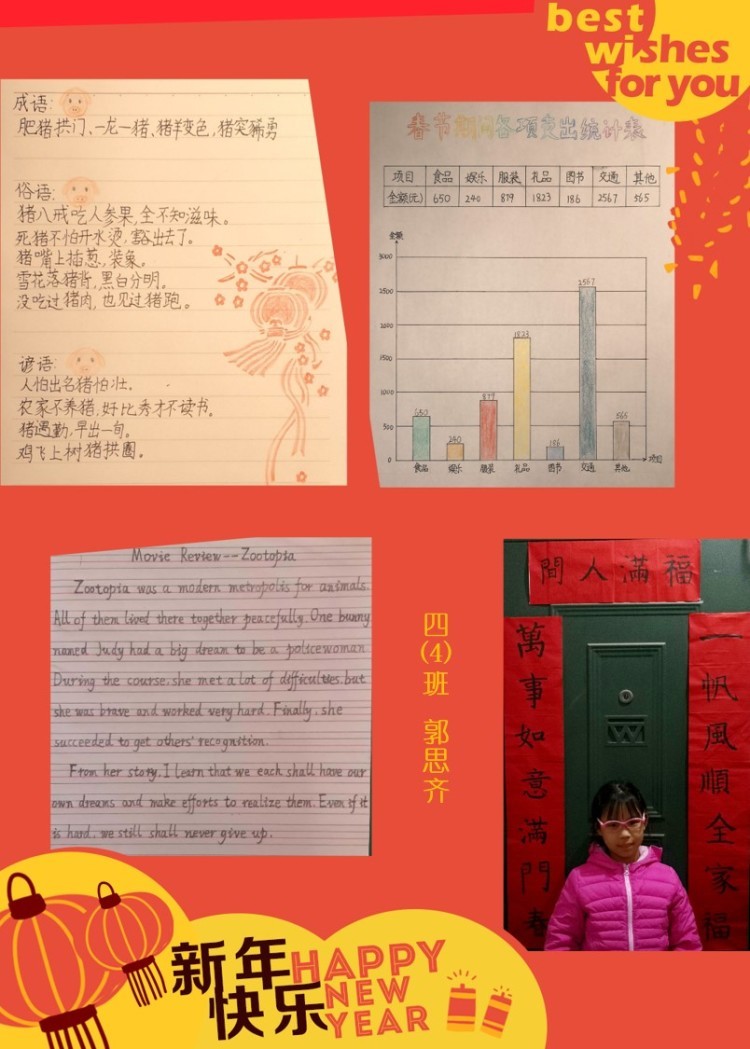 best
wishes
for you
成语:
肥猪拱门、一龙一猪、猪羊变色,猪突豨勇
俗语:
猪八戒吃人参果,全不知滋味。
死猪不怕开水烫,豁出去了。
猪嘴上插葱,装象。
雪花落猪背,黑白分明。
没吃过猪肉,也见过猪跑。
谚语:
人怕出名猪怕壮。
农家不养猪,好比秀才不读书。
猪遇勤,早出一旬。
鸡飞上树猪拱圈。
春节期间各项支出统计表
项目 食品 娱乐 服装 礼品 图书 交通 其他
金额(元) 650 240 879 1823 186 2567 565
金额
3000
2500
2000
1500
1000
500
0
650 240 879 1823 186 2567 565
食品 娱乐 服装 礼品 图书 交通 其他 项目
Movie Review--Zootopia
Zootopia was a modern metropolis for animals.
All of them lived there together peacefully. One bunny
named Judy had a big dream to be a policewoman.
During the course, she met a lot of difficulties, but
she was brave and worked very hard. Finally, she
succeeded to get others' recognition.
From her story, I learn that we each shall have our
own dreams and make efforts to realize them. Even if it
is hard, we still shall never give up.
四(4)班 郭思齐
間人滿福
一帆風順全家福
萬事如意滿門春
新年快乐
HAPPY
NEW
YEAR